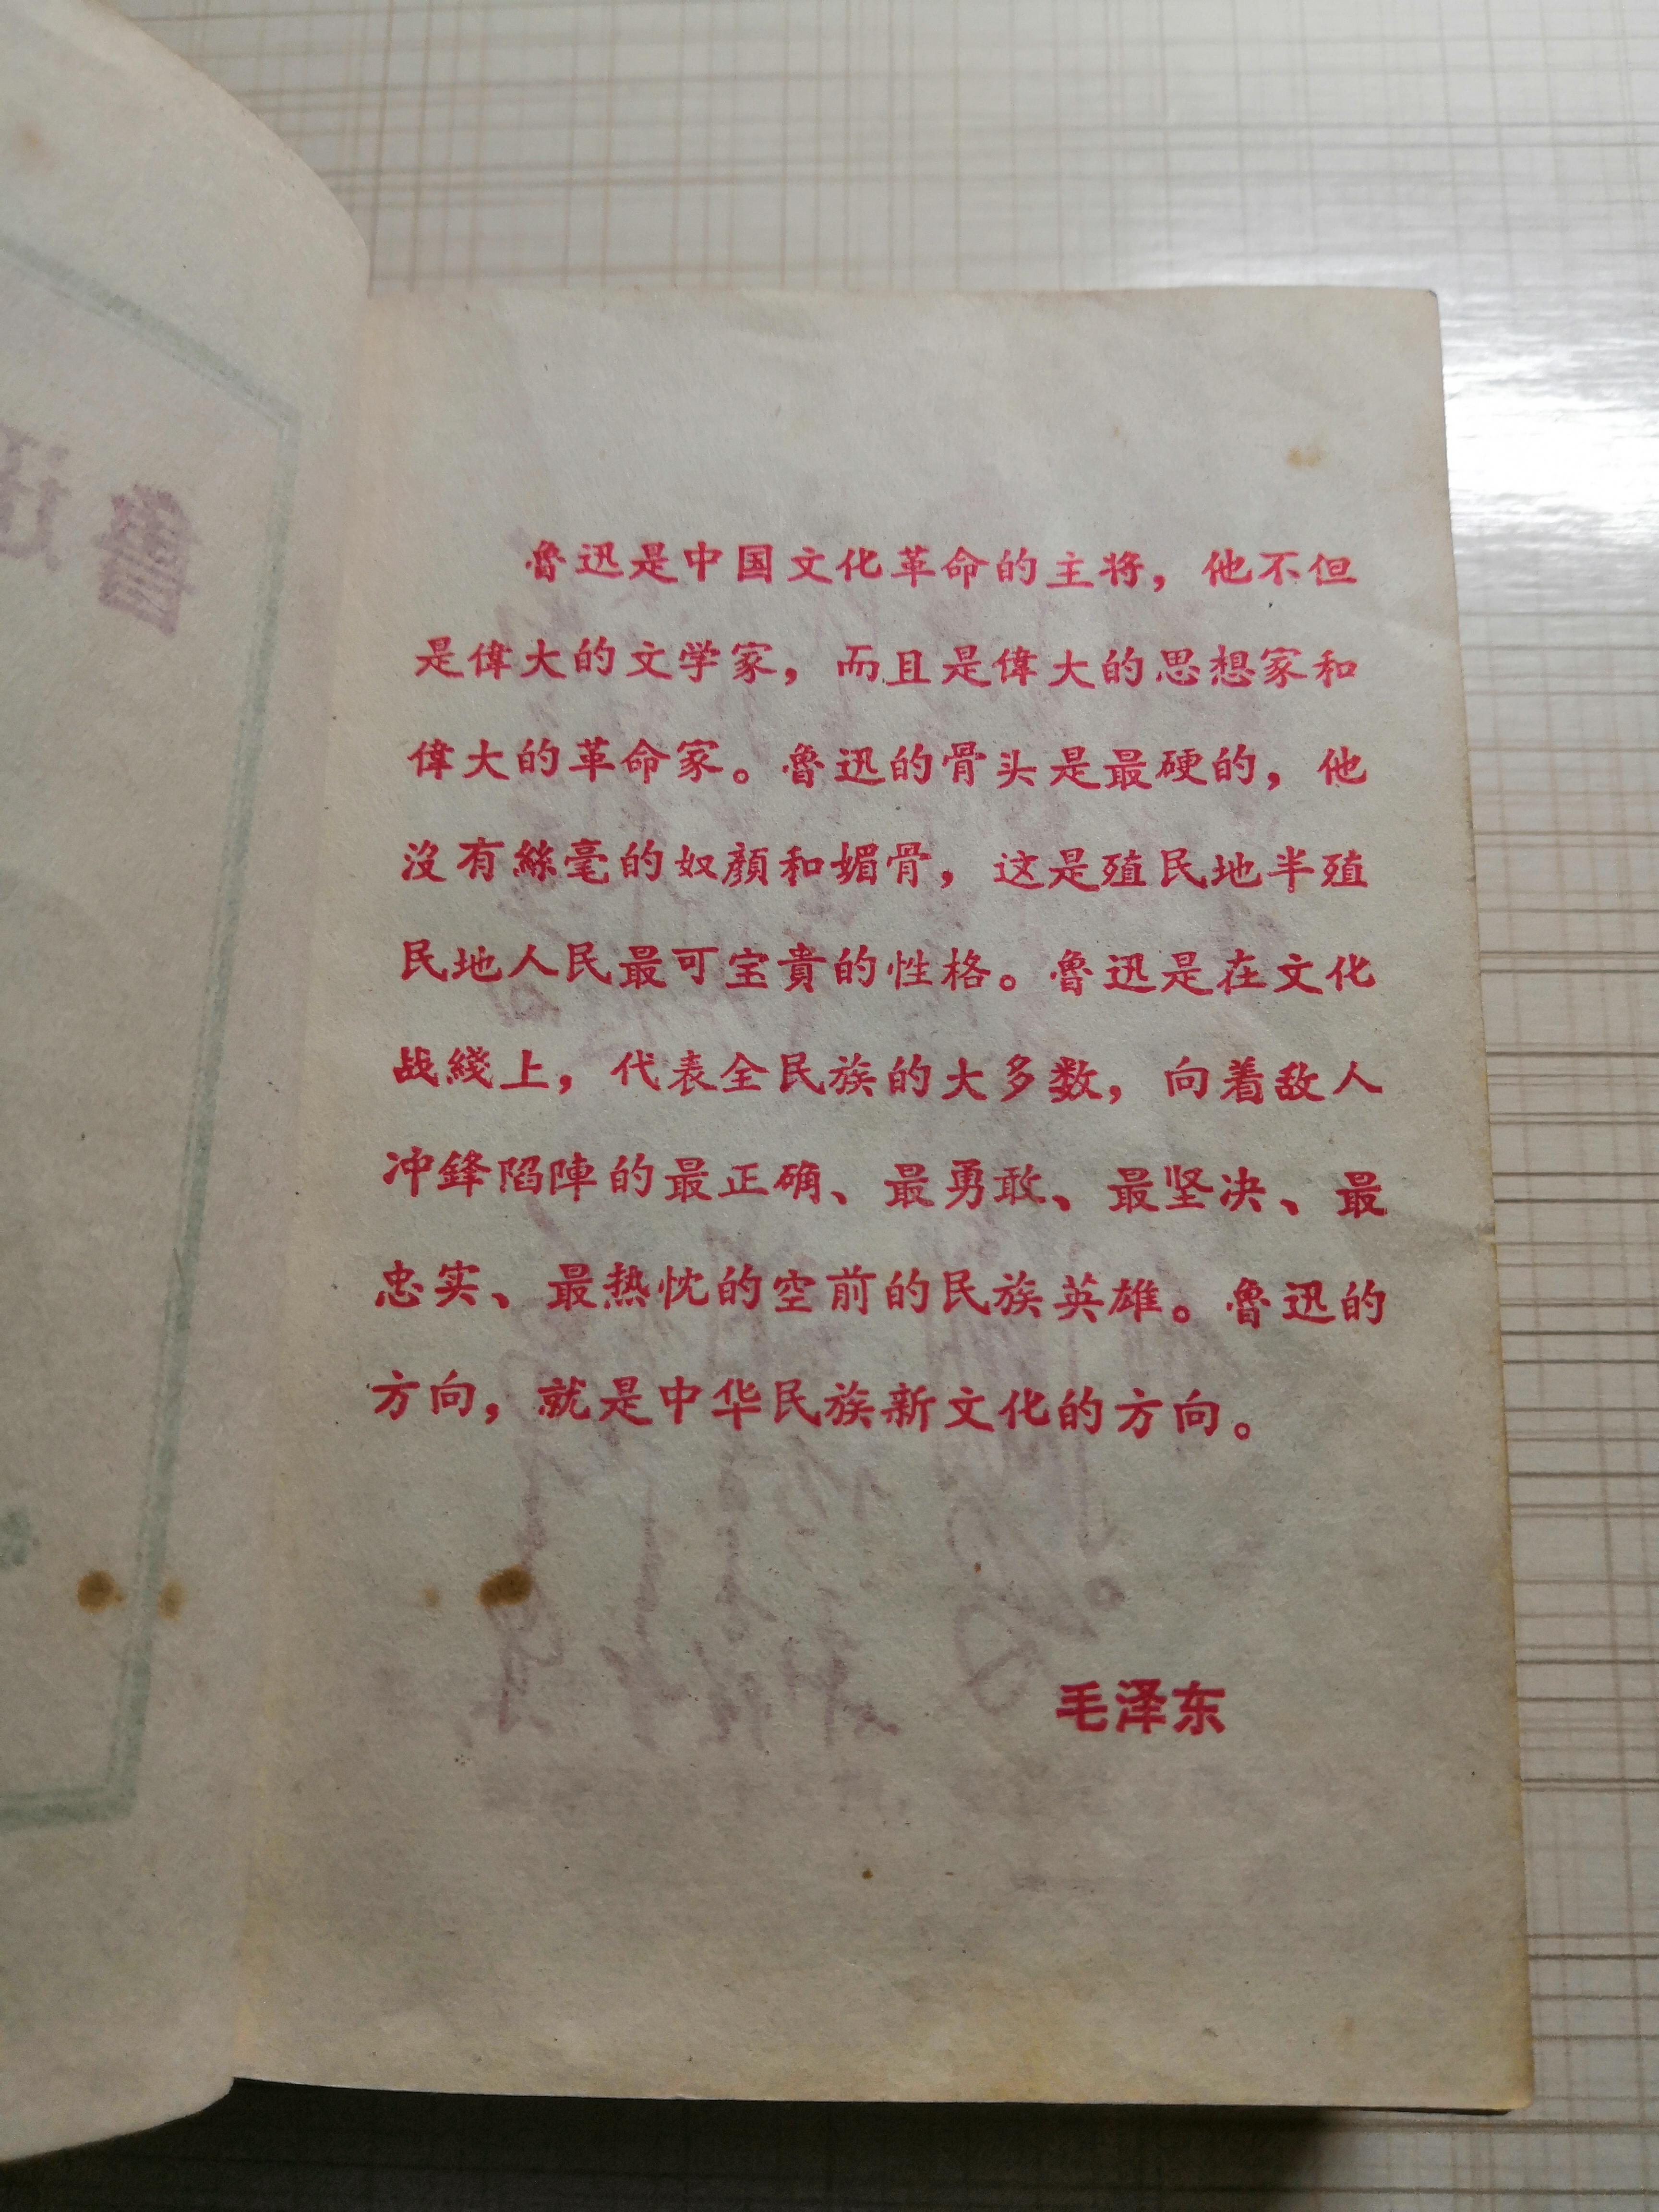 鲁迅是中国文化革命的主将，他不但
是偉大的文学家，而且是偉大的思想家和
偉大的革命家。鲁迅的骨头是最硬的，他
没有絲毫的奴顔和媚骨，这是殖民地半殖
民地人民最可宝貴的性格。鲁迅是在文化
战綫上，代表全民族的大多数，向着敌人
冲鋒陷陣的最正确、最勇敢、最坚决、最
忠实、最热忱的空前的民族英雄。鲁迅的
方向，就是中华民族新文化的方向。
毛泽东